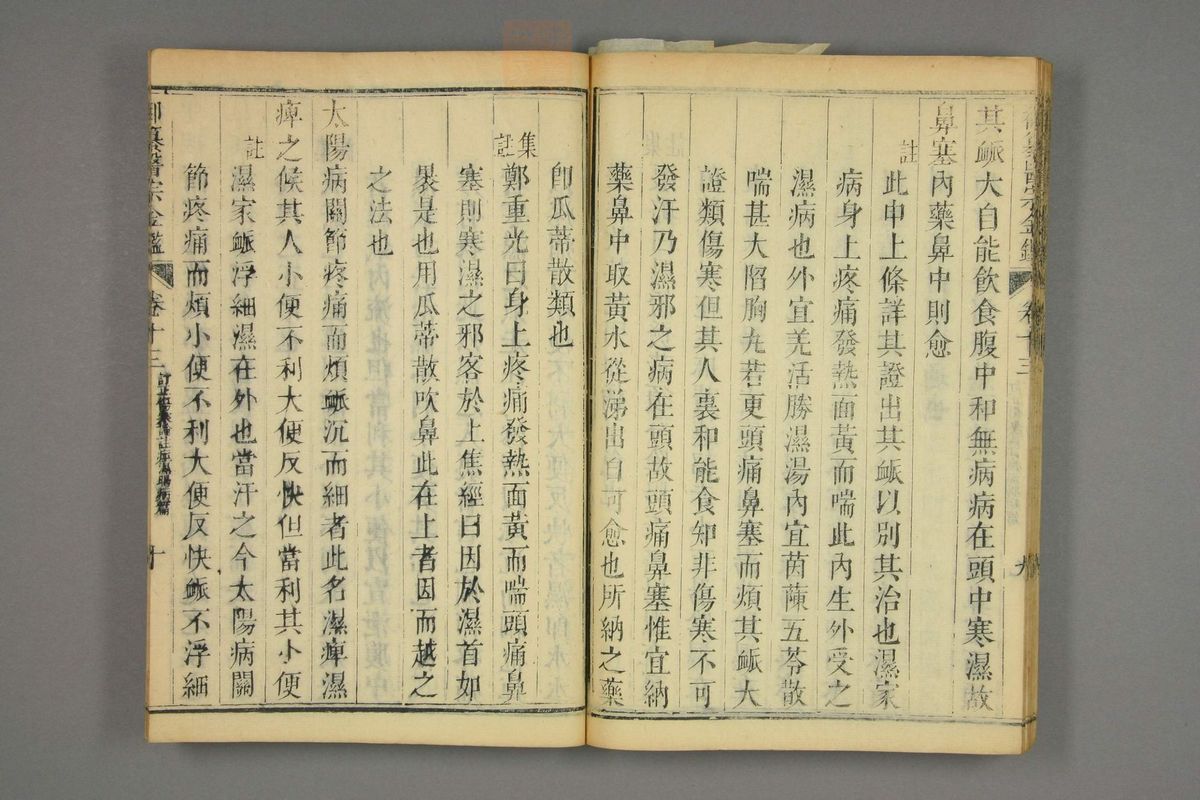 其脈大自能飲食腹中和無病病在頭中寒濕故
鼻塞內藥鼻中則愈
註
此申上條詳其證出其脈以別其治也濕家
病身上疼痛發熱面黃而喘此內生外受之
濕病也外宜羌活勝濕湯內宜茵蔯五苓散
喘甚大陷胸丸若更頭痛鼻塞而煩其脈大
證類傷寒但其人裏和能食知非傷寒不可
發汗乃濕邪之病在頭故頭痛鼻塞惟宜納
藥鼻中取黃水從涕出自可愈也所納之藥
卽瓜蒂散類也
集註
鄭重光曰身上疼痛發熱面黃而喘頭痛鼻
塞則寒濕之邪客於上焦經曰因於濕首如
裹是也用瓜蒂散吹鼻此在上者因而越之
之法也
太陽病關節疼痛而煩脈沉而細者此名濕痺濕
痺之候其人小便不利大便反快但當利其小便
註
濕家脈浮細濕在外也當汗之今太陽病關
節疼痛而煩小便不利大便反快脈不浮細
御纂醫宗金鑑
卷十三
十